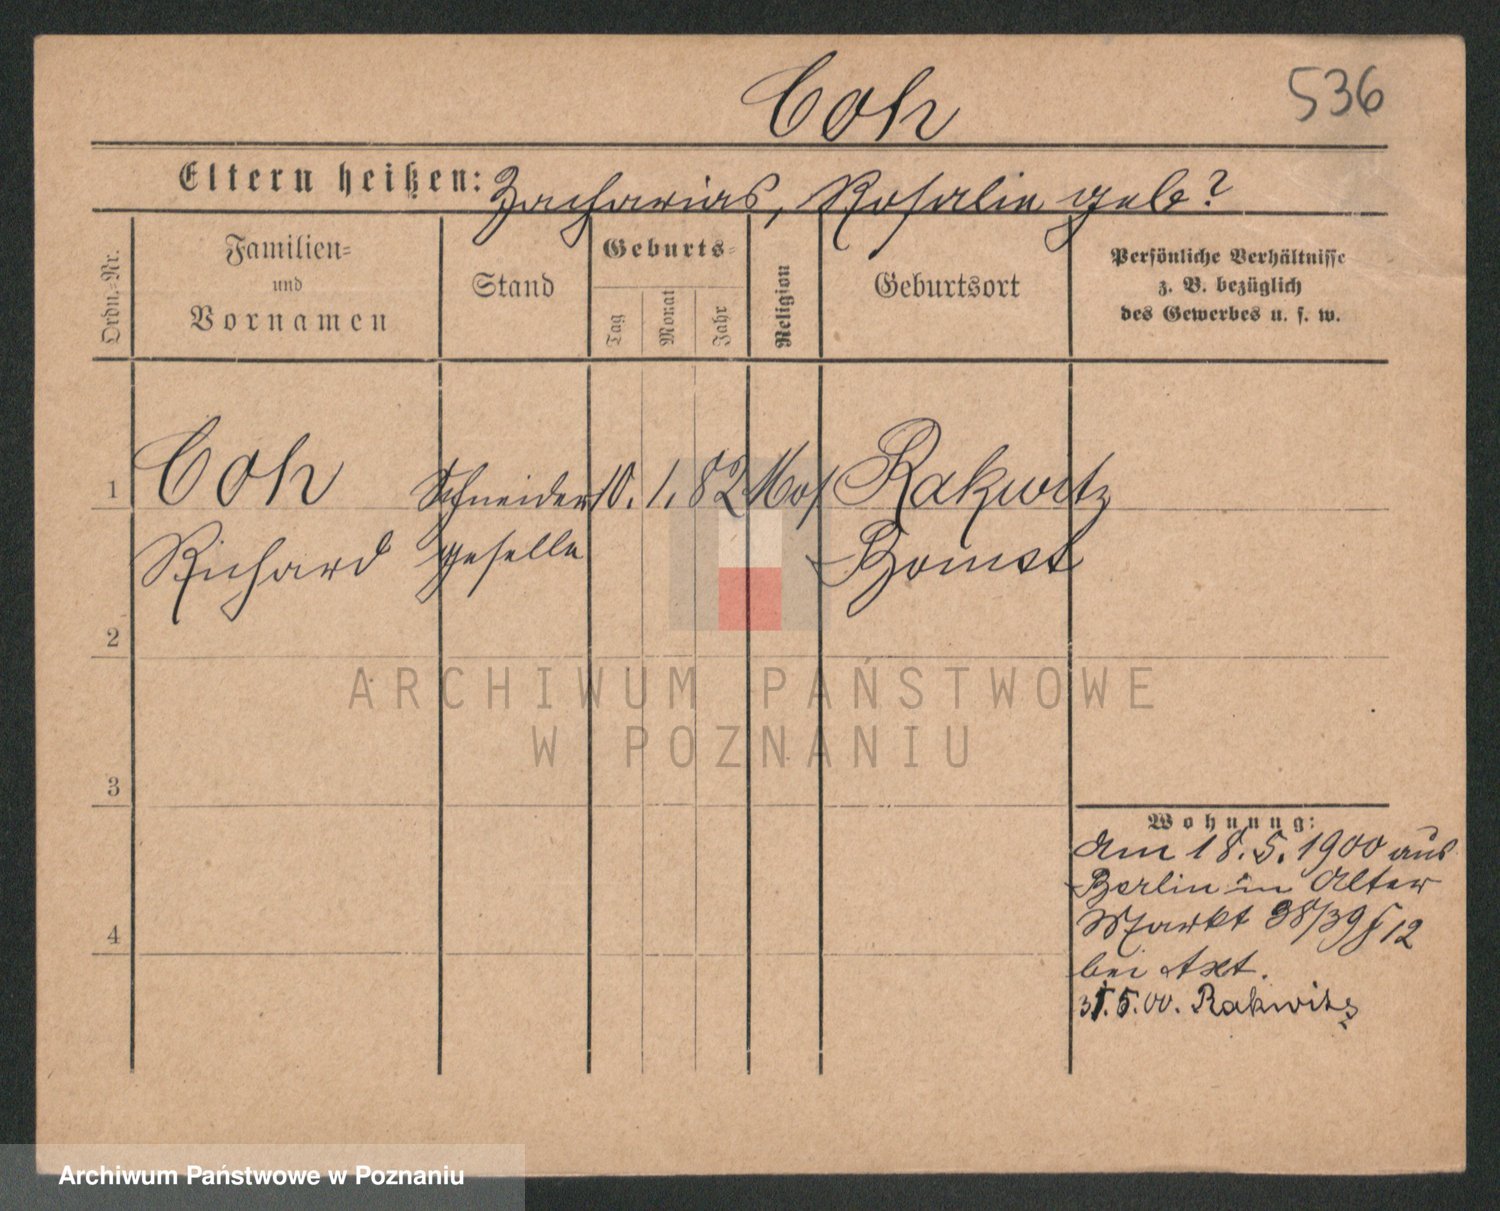 Coh
536
Eltern heißen: Zacharias, Rosalie geb?
Ordn.=Nr.
Familien=
und
Vornamen
Stand
Geburts=
Tag
Monat
Jahr
Religion
Geburtsort
Persönliche Verhältnisse
z. B. bezüglich
des Gewerbes u. s. w.
1 Coh Schneider 10. 1. 82 Mos Rakwitz
Richard geselle Bomst
2
ARCHIWUM PAŃSTWOWE
W POZNANIU
3
Wohnung:
Am 18. 5. 1900 aus
Berlin in Alter
Markt 38/39 12
bei Axt.
31. 5. 00. Rakwitz
4
Archiwum Państwowe w Poznaniu